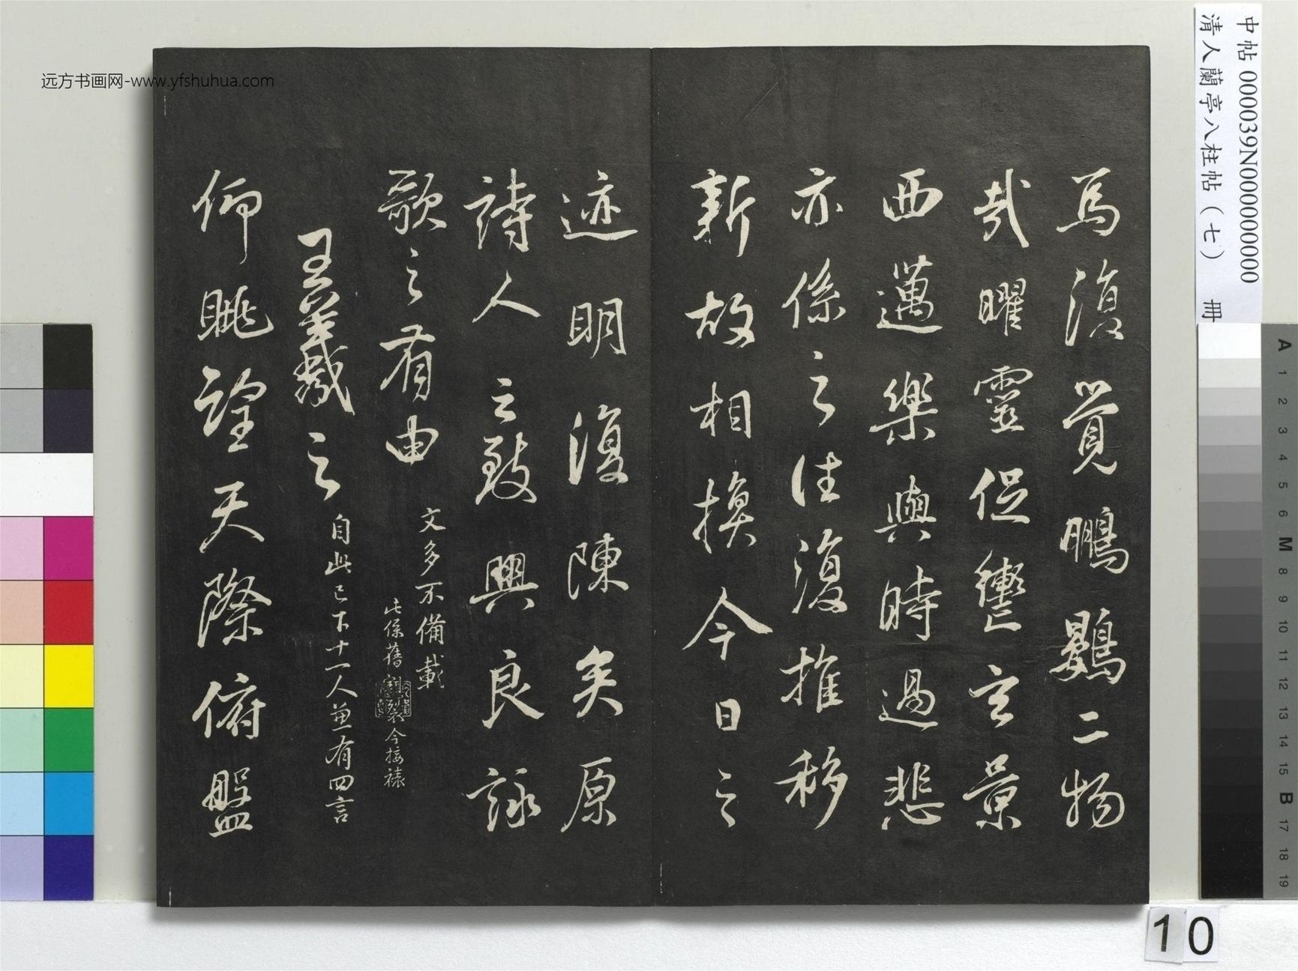 焉復覺鵬鷃二物
哉曜靈促轡玄景
西邁樂與時過悲
亦係之往復推移
新故相換今日之
迹明復陳矣原
詩人之致興良詠
歌之有由
文多不備載
此係舊 裂今接裱
王羲之
自此已下十一人並有四言
仰眺望天際俯盤
远方书画网-www.yfshuhua.com
中帖 000039N000000000
清人蘭亭八柱帖（七） 冊
A 1 2 3 4 5 6 M 8 9 10 11 12 13 14 15 B 17 18 19
10